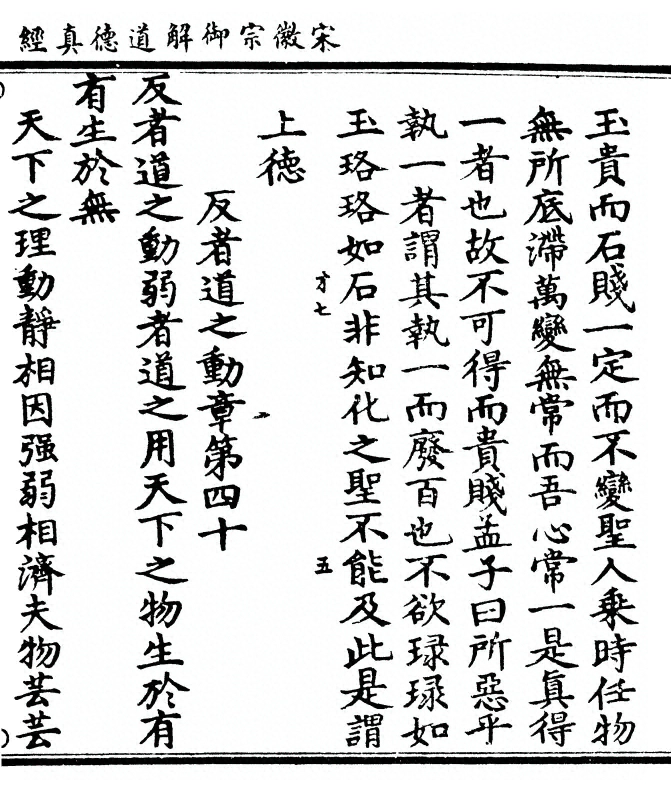 宋徽宗御解道德真經
玉貴而石賤一定而不變聖人乘時任物
無所底滯萬變無常而吾心常一是真得
一者也故不可得而貴賤孟子曰所惡乎
執一者謂其執一而廢百也不欲琭琭如
玉珞珞如石非知化之聖不能及此是謂
才七
五
上德
反者道之動章第四十
反者道之動弱者道之用天下之物生於有
有生於無
天下之理動靜相因强弱相濟夫物芸芸